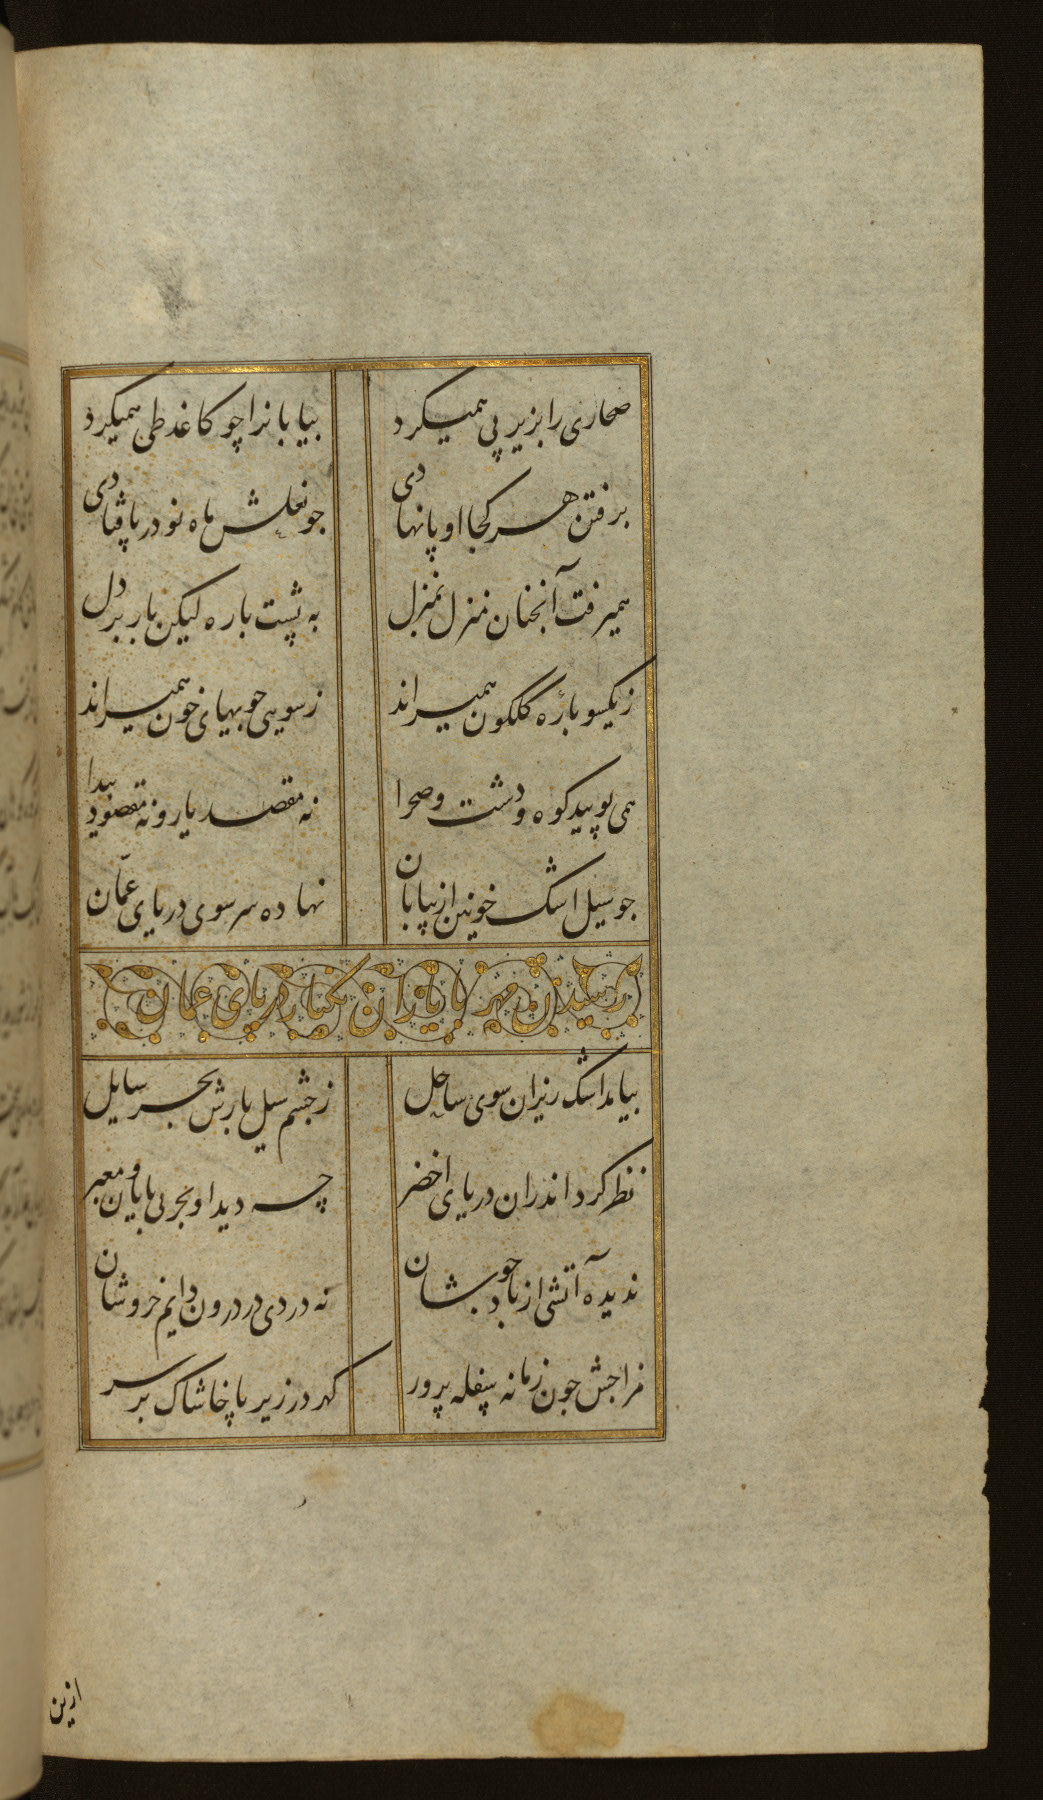 صحاری را بزیر پی همیکرد
بیابانرا چو کاغذ طی همیکرد
برفتن هر کجا او پا نهادی
جو نعلش ماه نو در پا فتادی
همیرفت آنجنان منزل بمنزل
به پشت باره لیکن بار بر دل
زیکسو بارهٔ گلگون همیراند
ز سویی جویهای خون همیراند
همی پویید کوه و دشت و صحرا
نه مقصد یار و نه مقصود پیدا
جو سیل اشک خونین از بیابان
نهاده سر سوی دریای عمّان
رسیدن مهر با یاران بکنار دریای عمان
بیامد اشک ریزان سوی ساحل
ز جشم سیل بارش بحر سایل
نظر کرد اندران دریای اخضر
چه دید او بحر بی پایان و معبر
ندیده آتشی از باد جوشان
نه دردی در درون دایم خروشان
مزاجش جون زمانه سفله پرور
گهر در زیر پا خاشاک بر سر
ازین